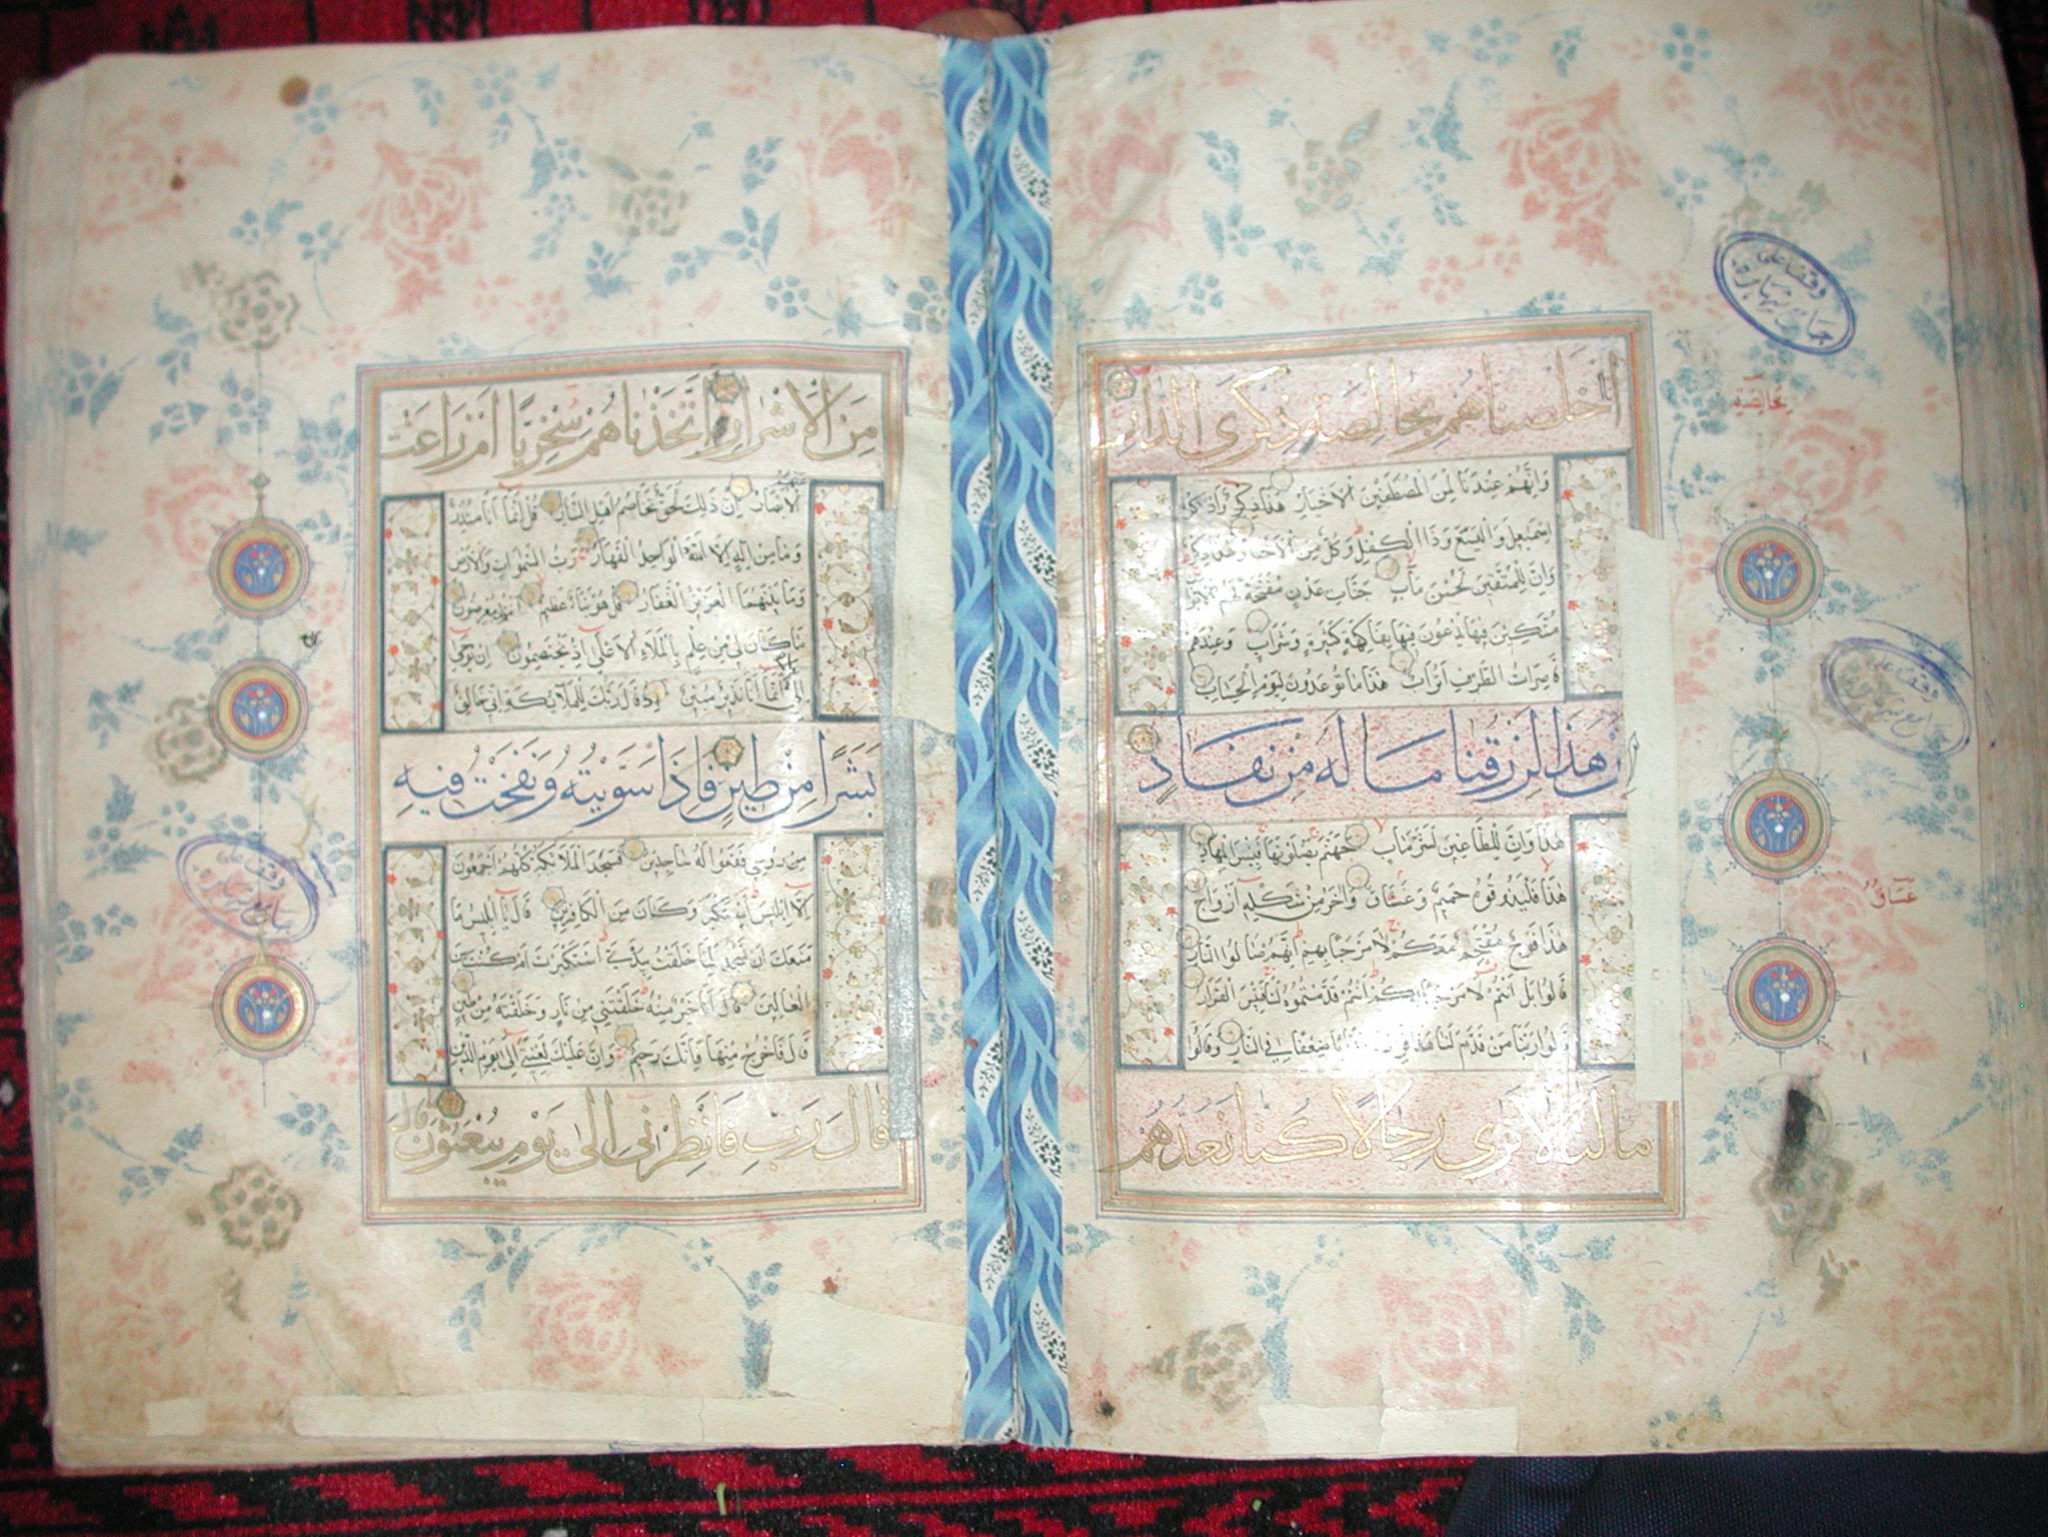 اخلصناهم بخالصة ذكرى الدار
وَاِنَّهُمْ عِنْدَنَا لَمِنَ الْمُصْطَفَيْنَ الْاَخْيَارِ هذا ذكر وَاذْكُرْ
اِسْمٰعيلَ وَالْيَسَعَ وَذَا الْكِفْلِ وَكُلٌّ مِنَ الْاَخْيَارِ هذا ذكر
وَاِنَّ لِلْمُتَّقينَ لَحُسْنَ مَاٰبٍ جَنَّاتِ عَدْنٍ مُفَتَّحَةً لَهُمُ الْاَبْوَابُ
مُتَّكِئينَ فيهَا يَدْعُونَ فيهَا بِفَاكِهَةٍ كَثيرَةٍ وَشَرَابٍ وَعِنْدَهُمْ
قَاصِرَاتُ الطَّرْفِ اَتْرَابٌ هٰذَا مَا تُوعَدُونَ لِيَوْمِ الْحِسَابِ
اِنَّ هَذَا لَرِزْقُنَا مَا لَهُ مِنْ نَفَادٍ
هٰذَا وَاِنَّ لِلطَّاغينَ لَشَرَّ مَاٰبٍ جَهَنَّمَ يَصْلَوْنَهَا فَبِئْسَ الْمِهَادُ
هٰذَا فَلْيَذُوقُوهُ حَميمٌ وَغَسَّاقٌ وَاٰخَرُ مِنْ شَكْلِهِ اَزْوَاجٌ
هٰذَا فَوْجٌ مُقْتَحِمٌ مَعَكُمْ لَا مَرْحَبًا بِهِمْ اِنَّهُمْ صَالُوا النَّارِ
قَالُوا بَلْ اَنْتُمْ لَا مَرْحَبًا بِكُمْ اَنْتُمْ قَدَّمْتُمُوهُ لَنَا فَبِئْسَ الْقَرَارُ
قَالُوا رَبَّنَا مَنْ قَدَّمَ لَنَا هٰذَا فَزِدْهُ عَذَابًا ضِعْفًا فِي النَّارِ وَقَالُوا
مَا لَنَا لَا نَرَى رِجَالًا كُنَّا نَعُدُّهُمْ
بخالصة
غساق
وقف على
جامع
مِنَ الْاَشْرَارِ اَتَّخَذْنَاهُمْ سِخْرِيًّا اَمْ زَاغَتْ
الْاَبْصَارُ اِنَّ ذٰلِكَ لَحَقٌّ تَخَاصُمُ اَهْلِ النَّارِ قُلْ اِنَّمَا اَنَا مُنْذِرٌ
وَمَا مِنْ اِلٰهٍ اِلَّا اللّٰهُ الْوَاحِدُ الْقَهَّارُ رَبُّ السَّمٰوَاتِ وَالْاَرْضِ
وَمَا بَيْنَهُمَا الْعَزيزُ الْغَفَّارُ قُلْ هُوَ نَبَؤٌا عَظيمٌ اَنْتُمْ عَنْهُ مُعْرِضُونَ
مَا كَانَ لِيَ مِنْ عِلْمٍ بِالْمَلَاءِ الْاَعْلٰى اِذْ يَخْتَصِمُونَ اِنْ يُوحٰى
اِلَيَّ اِلَّا اَنَّمَا اَنَا نَذيرٌ مُبينٌ اِذْ قَالَ رَبُّكَ لِلْمَلٰئِكَةِ اِنّي خَالِقٌ
بَشَرًا مِنْ طينٍ فَاِذَا سَوَّيْتُهُ وَنَفَخْتُ فيهِ
مِنْ رُوحي فَقَعُوا لَهُ سَاجِدينَ فَسَجَدَ الْمَلٰئِكَةُ كُلُّهُمْ اَجْمَعُونَ
اِلَّا اِبْليسَ اِسْتَكْبَرَ وَكَانَ مِنَ الْكَافِرينَ قَالَ يَا اِبْليسُ مَا
مَنَعَكَ اَنْ تَسْجُدَ لِمَا خَلَقْتُ بِيَدَيَّ اَسْتَكْبَرْتَ اَمْ كُنْتَ مِنَ
الْعَالينَ قَالَ اَنَا خَيْرٌ مِنْهُ خَلَقْتَني مِنْ نَارٍ وَخَلَقْتَهُ مِنْ طينٍ
قَالَ فَاخْرُجْ مِنْهَا فَاِنَّكَ رَجيمٌ وَاِنَّ عَلَيْكَ لَعْنَتي اِلٰى يَوْمِ الدّينِ
قَالَ رَبِّ فَاَنْظِرْني اِلٰى يَوْمِ يُبْعَثُونَ قَالَ
وقف على